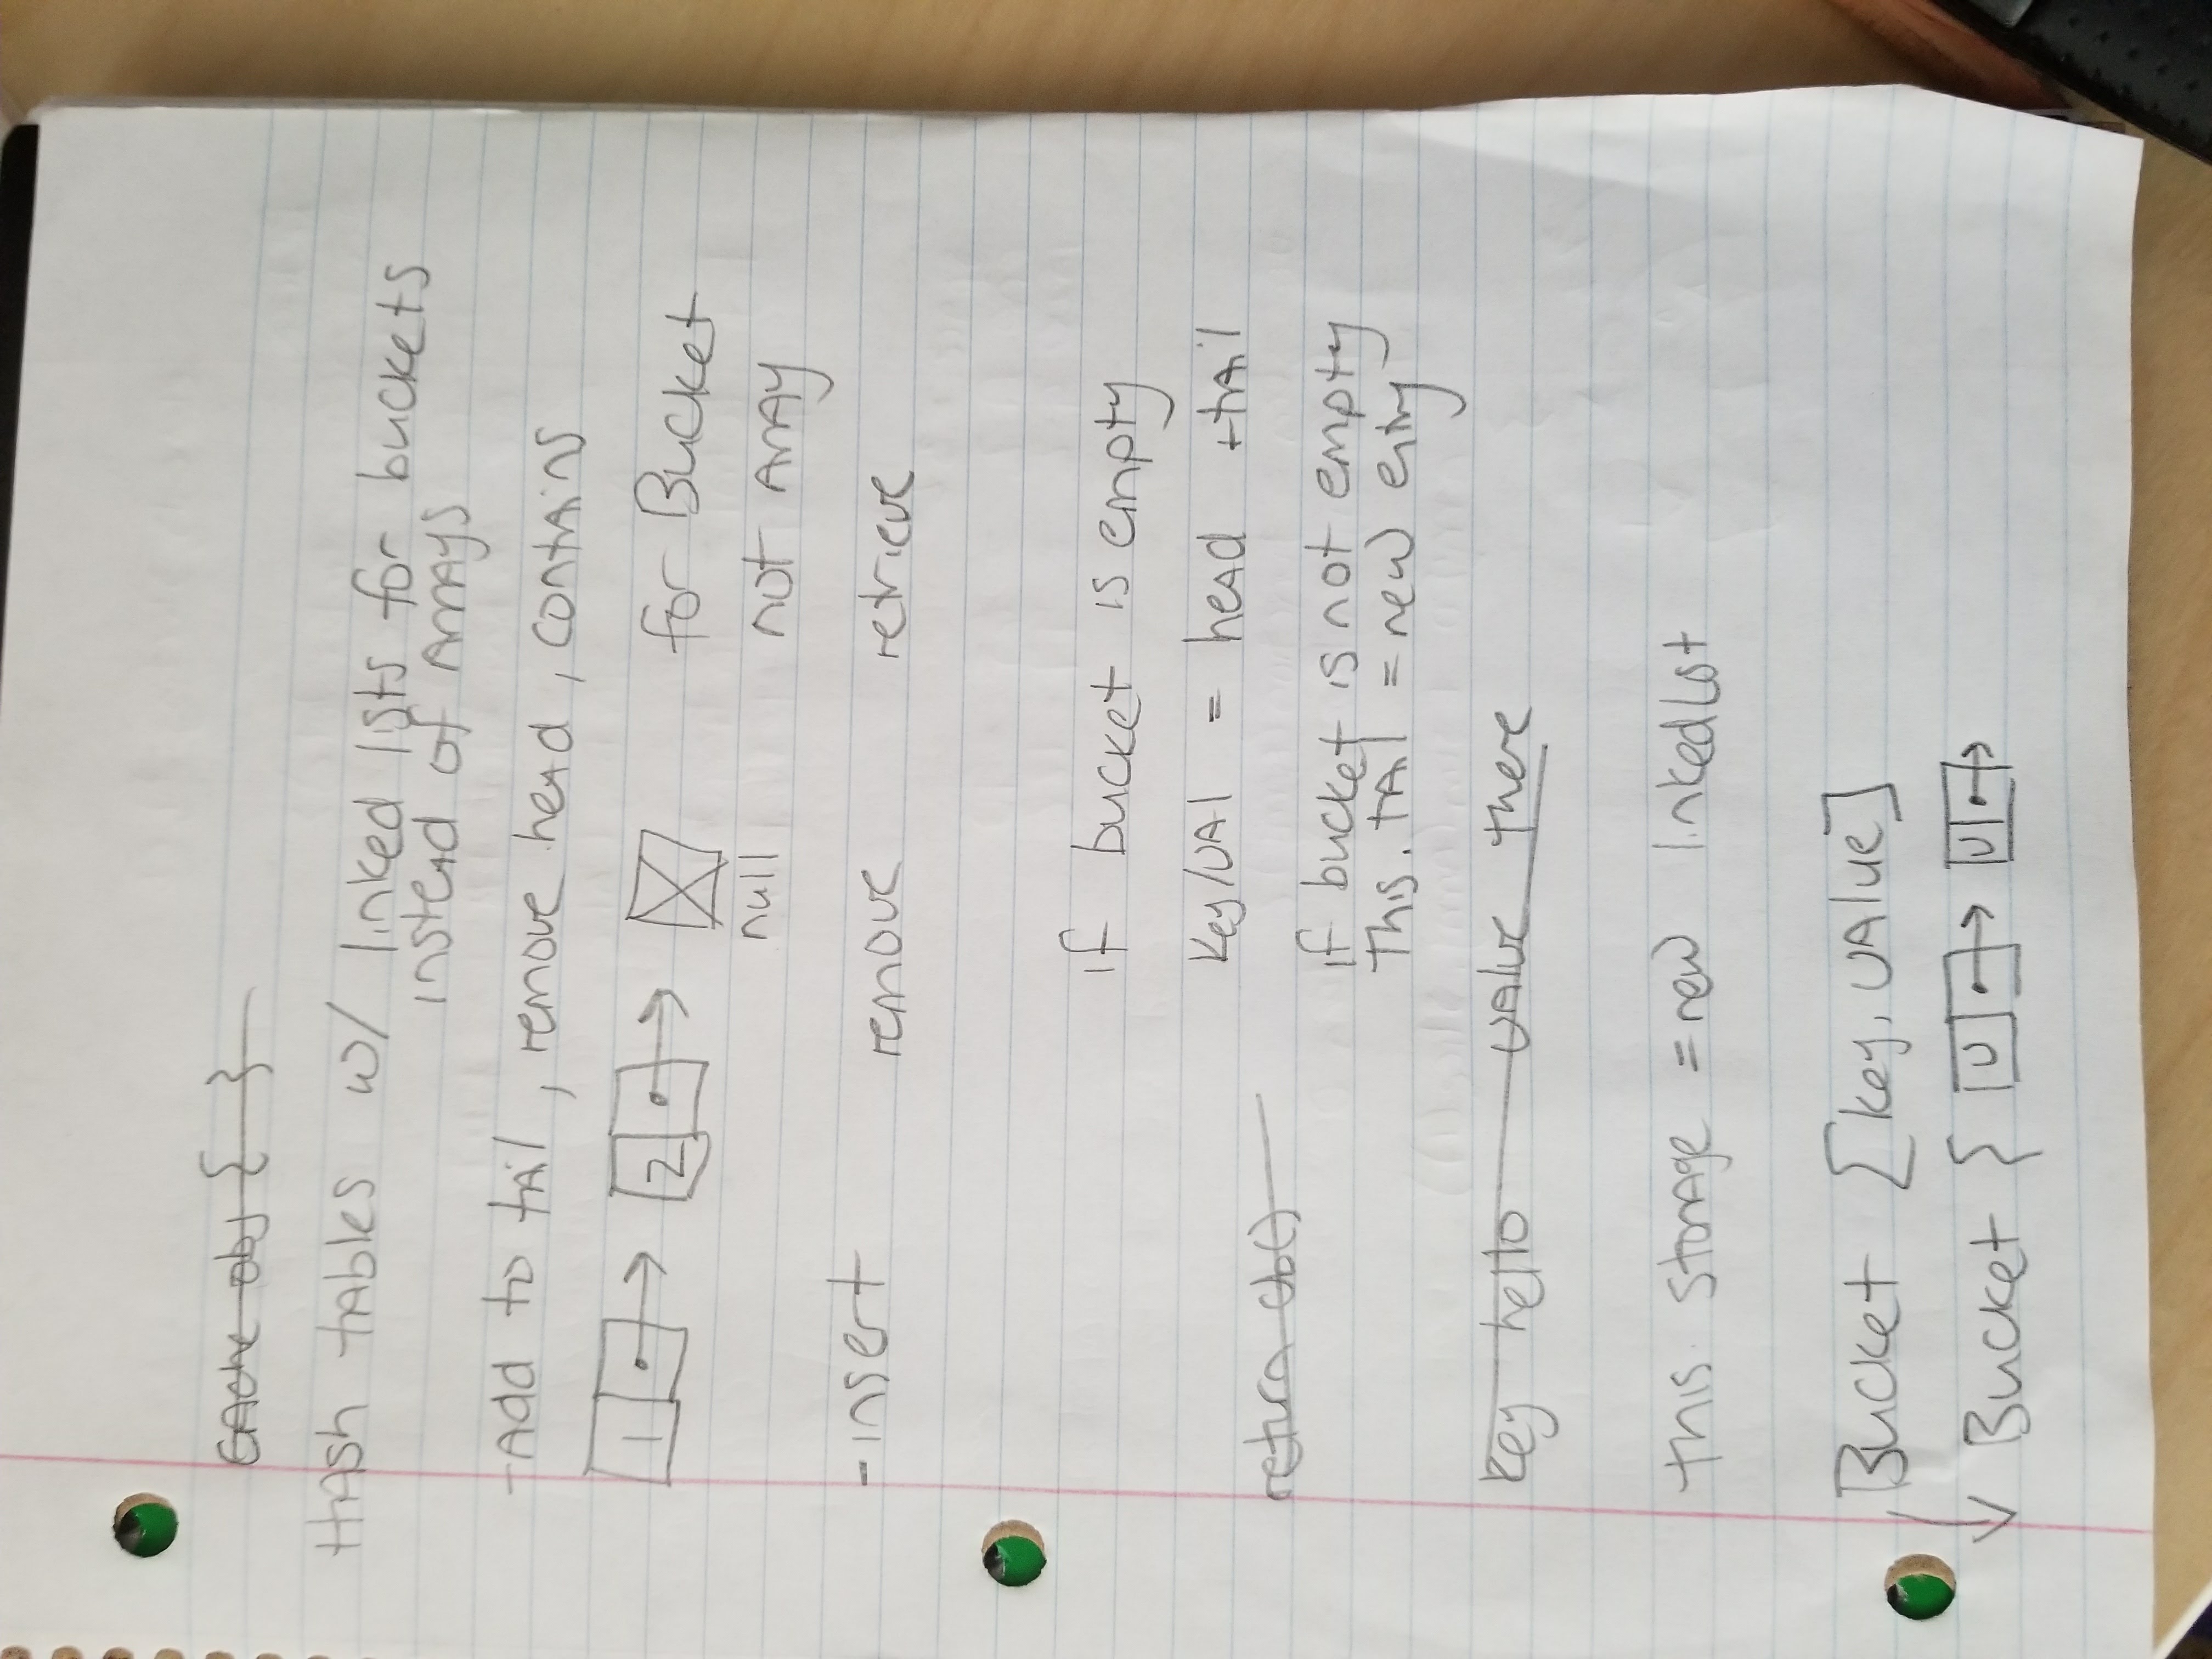 Cache obj { }
Hash tables w/ linked lists for buckets
instead of arrays
-Add to tail, remove head, contains
1 2
null
for Bucket
not array
-insert remove retrieve
if bucket is empty
key/val = head + tail
return cb()
if bucket is not empty
This.tail = new entry
key hello value there
this.storage = new linkedList
Bucket [key, value]
Bucket { V V